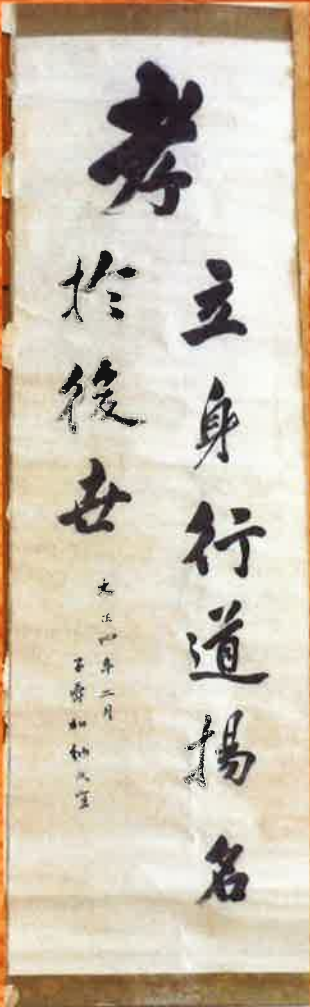 孝
立身行道揚名
於後世
大正四年二月
子爵加納久宜